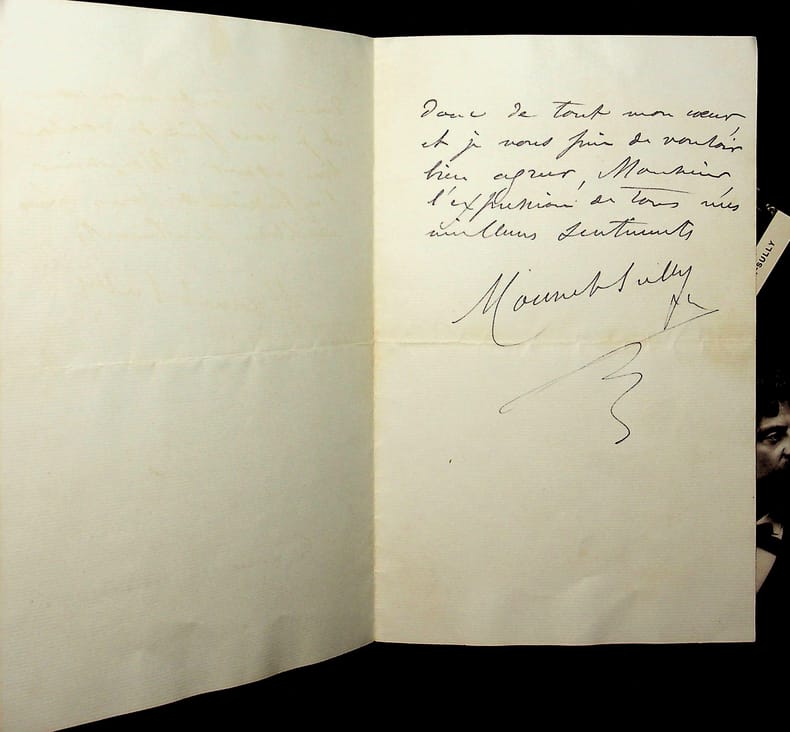 donc de tout mon cœur,
et je vous prie de vouloir
bien agréer, Monsieur
l'expression de tous mes
meilleurs sentiments
Mounet Sully
-SULLY